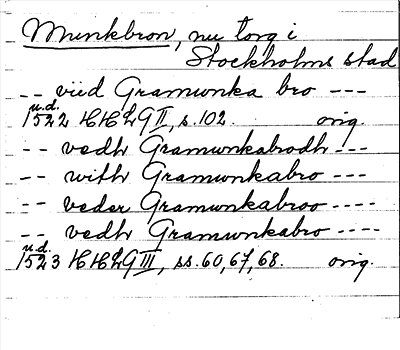 Munkbron, nu torg i
Stockholms stad
-- viid Gramunka bro ---
u.d.
1522 HH LG II, s. 102. orig.
-- vedh Gramunkabrodh ---
-- with Gramunkabro ---
-- veder Gramunkabroo ----
-- vedh Gramunkabro ----
u.d.
1523 HH LG III, ss. 60, 67, 68. orig.